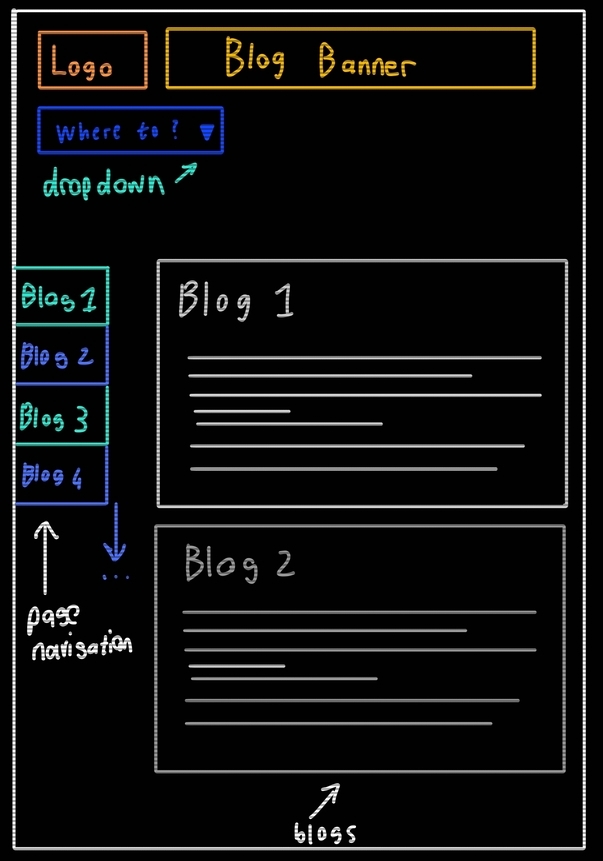 Logo
Blog Banner
Where to?
dropdown
Blog 1
Blog 2
Blog 3
Blog 4
...
page
navigation
Blog 1
Blog 2
blogs